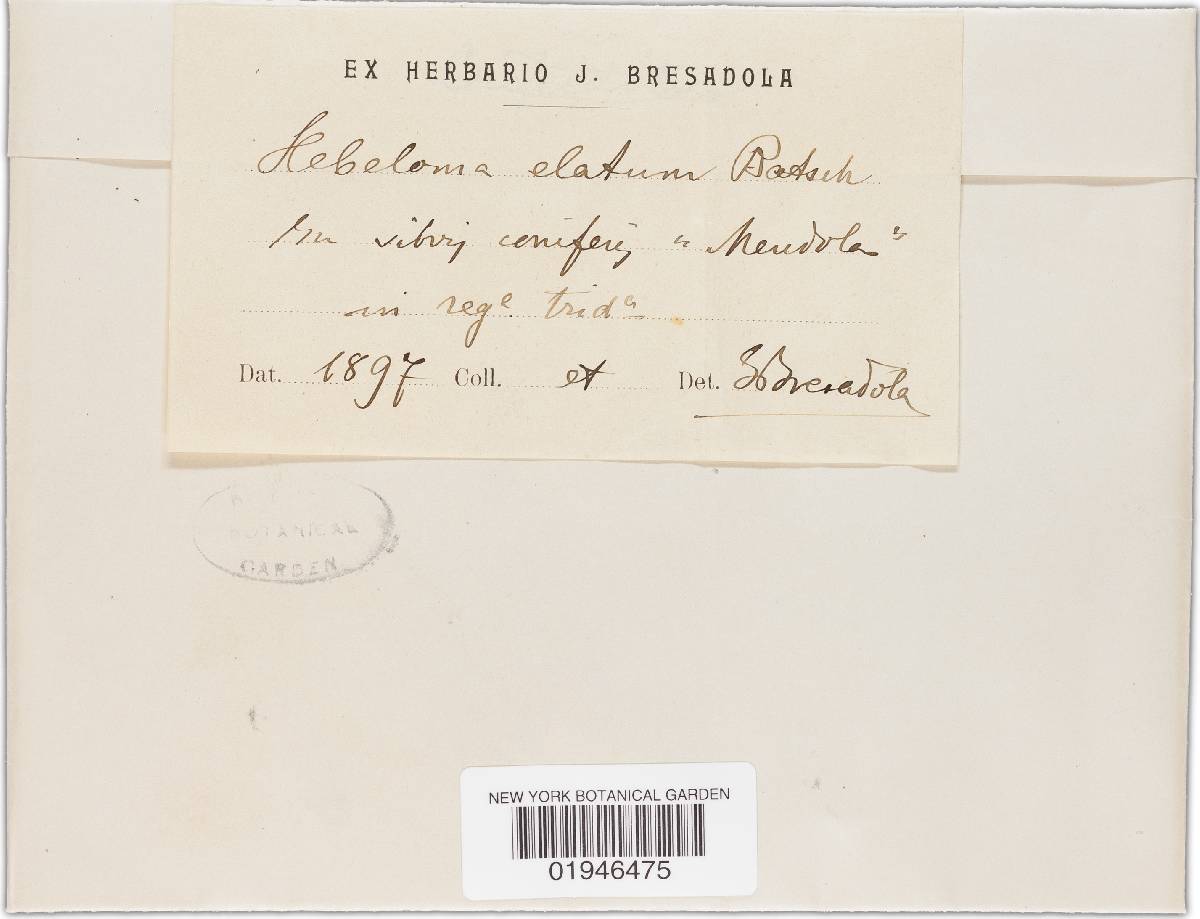 EX HERBARIO J. BRESADOLA
Hebeloma elatum Batsch
In silvis coniferis "Mendola"
in regᵉ tridᵃ
Dat. 1897 Coll. et Det. J Bresadola
BOTANICAL
GARDEN
NEW YORK BOTANICAL GARDEN
01946475